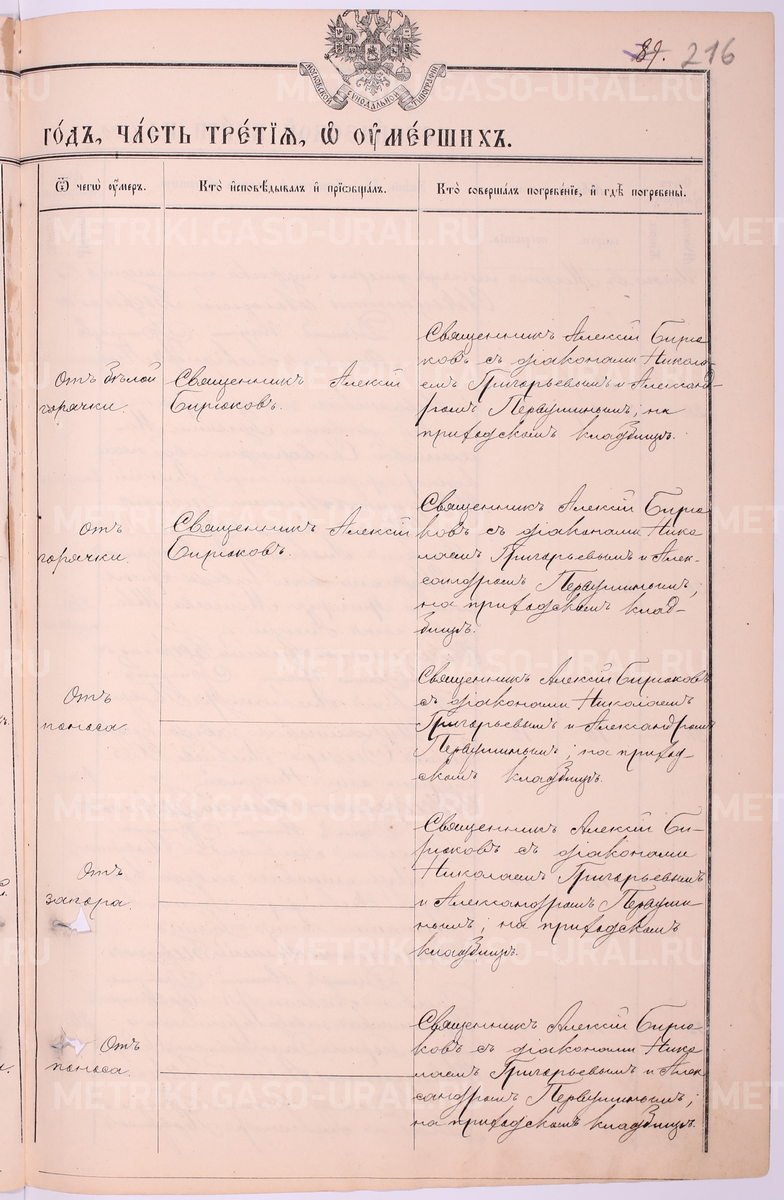 89. 216
МОСКОВСКОЙ СѴНОДАЛЬНОЙ ТИПОГРАФІИ
ГО́ДЪ, ЧА́СТЬ ТРЕ́ТІѦ, Ѽ ОУ҆МЕ́РШИХЪ.
Ѿ чегѡ̀ ᲂу҆́меръ.
Кто̀ и҆сповѣ́дывалъ и҆ прїѡбща́лъ.
Кто̀ соверша́лъ погребе́нїе, и҆ гдѣ̀ погребены̀.
Отъ бѣлой
горячки.
Священникъ Алексій
Бирюковъ.
Священникъ Алексій Бирю
ковъ съ діаконами Никола-
емъ Григорьевымъ и Александ-
ромъ Первушинымъ; на
приходскомъ кладбищѣ.
Отъ
горячки.
Священникъ Алексій
Бирюковъ.
Священникъ Алексій Бирю
ковъ съ діаконами Нико
лаемъ Григорьевымъ и Алек-
сандромъ Первушинымъ;
на приходскомъ клад-
бищѣ.
Отъ
поноса.
Священникъ Алексій Бирюковъ
съ діаконами Николаемъ
Григорьевымъ и Александромъ
Первушинымъ; на приход-
скомъ кладбищѣ.
Отъ
запора.
Священникъ Алексій Би-
рюковъ съ діаконами
Николаемъ Григорьевымъ
и Александромъ Первуши-
нымъ; на приходскомъ
кладбищѣ.
Отъ
поноса.
Священникъ Алексій Бирю
ковъ съ діаконами Нико
лаемъ Григорьевымъ и Алек
сандромъ Первушинымъ;
на приходскомъ кладбищѣ.
METRIKI.GASO-URAL.RU